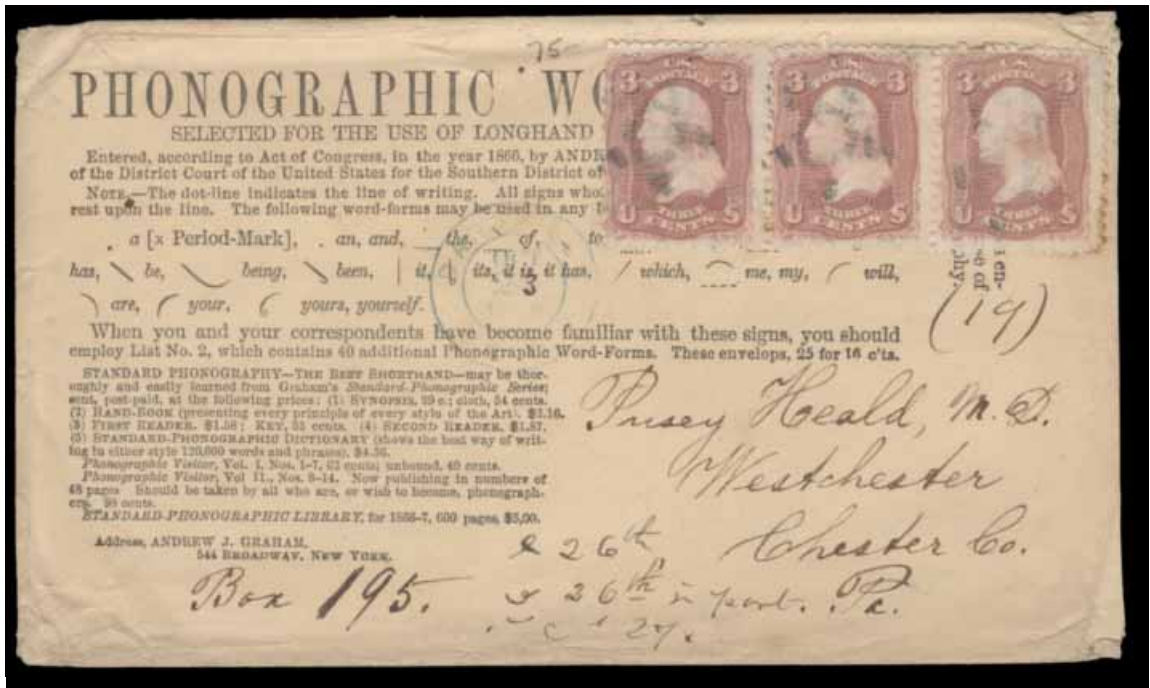 75
PHONOGRAPHIC WO
SELECTED FOR THE USE OF LONGHAND
Entered, according to Act of Congress, in the year 1866, by ANDR
of the District Court of the United States for the Southern District of
NOTE.—The dot-line indicates the line of writing. All signs who
rest upon the line. The following word-forms may be used in any
U.S. POSTAGE 3 3 U THREE CENTS S
U.S. POSTAGE 3 3 U THREE CENTS S
U.S. POSTAGE 3 3 U THREE CENTS S
a [x Period-Mark], an, and, the, of, to
has, be, being, been, it, its, it is, it has, which, me, my, will,
are, your, yours, yourself.
(19)
When you and your correspondents have become familiar with these signs, you should
employ List No. 2, which contains 40 additional Phonographic Word-Forms. These envelops, 25 for 16 c'ts.
STANDARD PHONOGRAPHY—THE BEST SHORTHAND—may be thor-
oughly and easily learned from Graham's Standard-Phonographic Series;
sent, post-paid, at the following prices: (1) SYNOPSIS, 29 c.; cloth, 54 cents.
(2) HAND-BOOK (presenting every principle of every style of the Art). $2.16.
(3) FIRST READER. $1.58; KEY, 35 cents. (4) SECOND READER. $1.87.
(5) STANDARD-PHONOGRAPHIC DICTIONARY (shows the best way of writ-
ing in either style 120,000 words and phrases).
Phonographic Visitor, Vol. I, Nos. 1-7, 62 cents; unbound, 40 cents.
Phonographic Visitor, Vol II., Nos. 8-14. Now publishing in numbers of
48 pages Should be taken by all who are, or wish to become, phonograph-
ers. 98 cents.
STANDARD-PHONOGRAPHIC LIBRARY, for 1866-7, 600 pages, $5,00.
Address, ANDREW J. GRAHAM,
544 BROADWAY, NEW YORK.
Pusey Heald, M.D.
Westchester
Chester Co.
Pa.
Box 195.
26th
26th in part.
27.